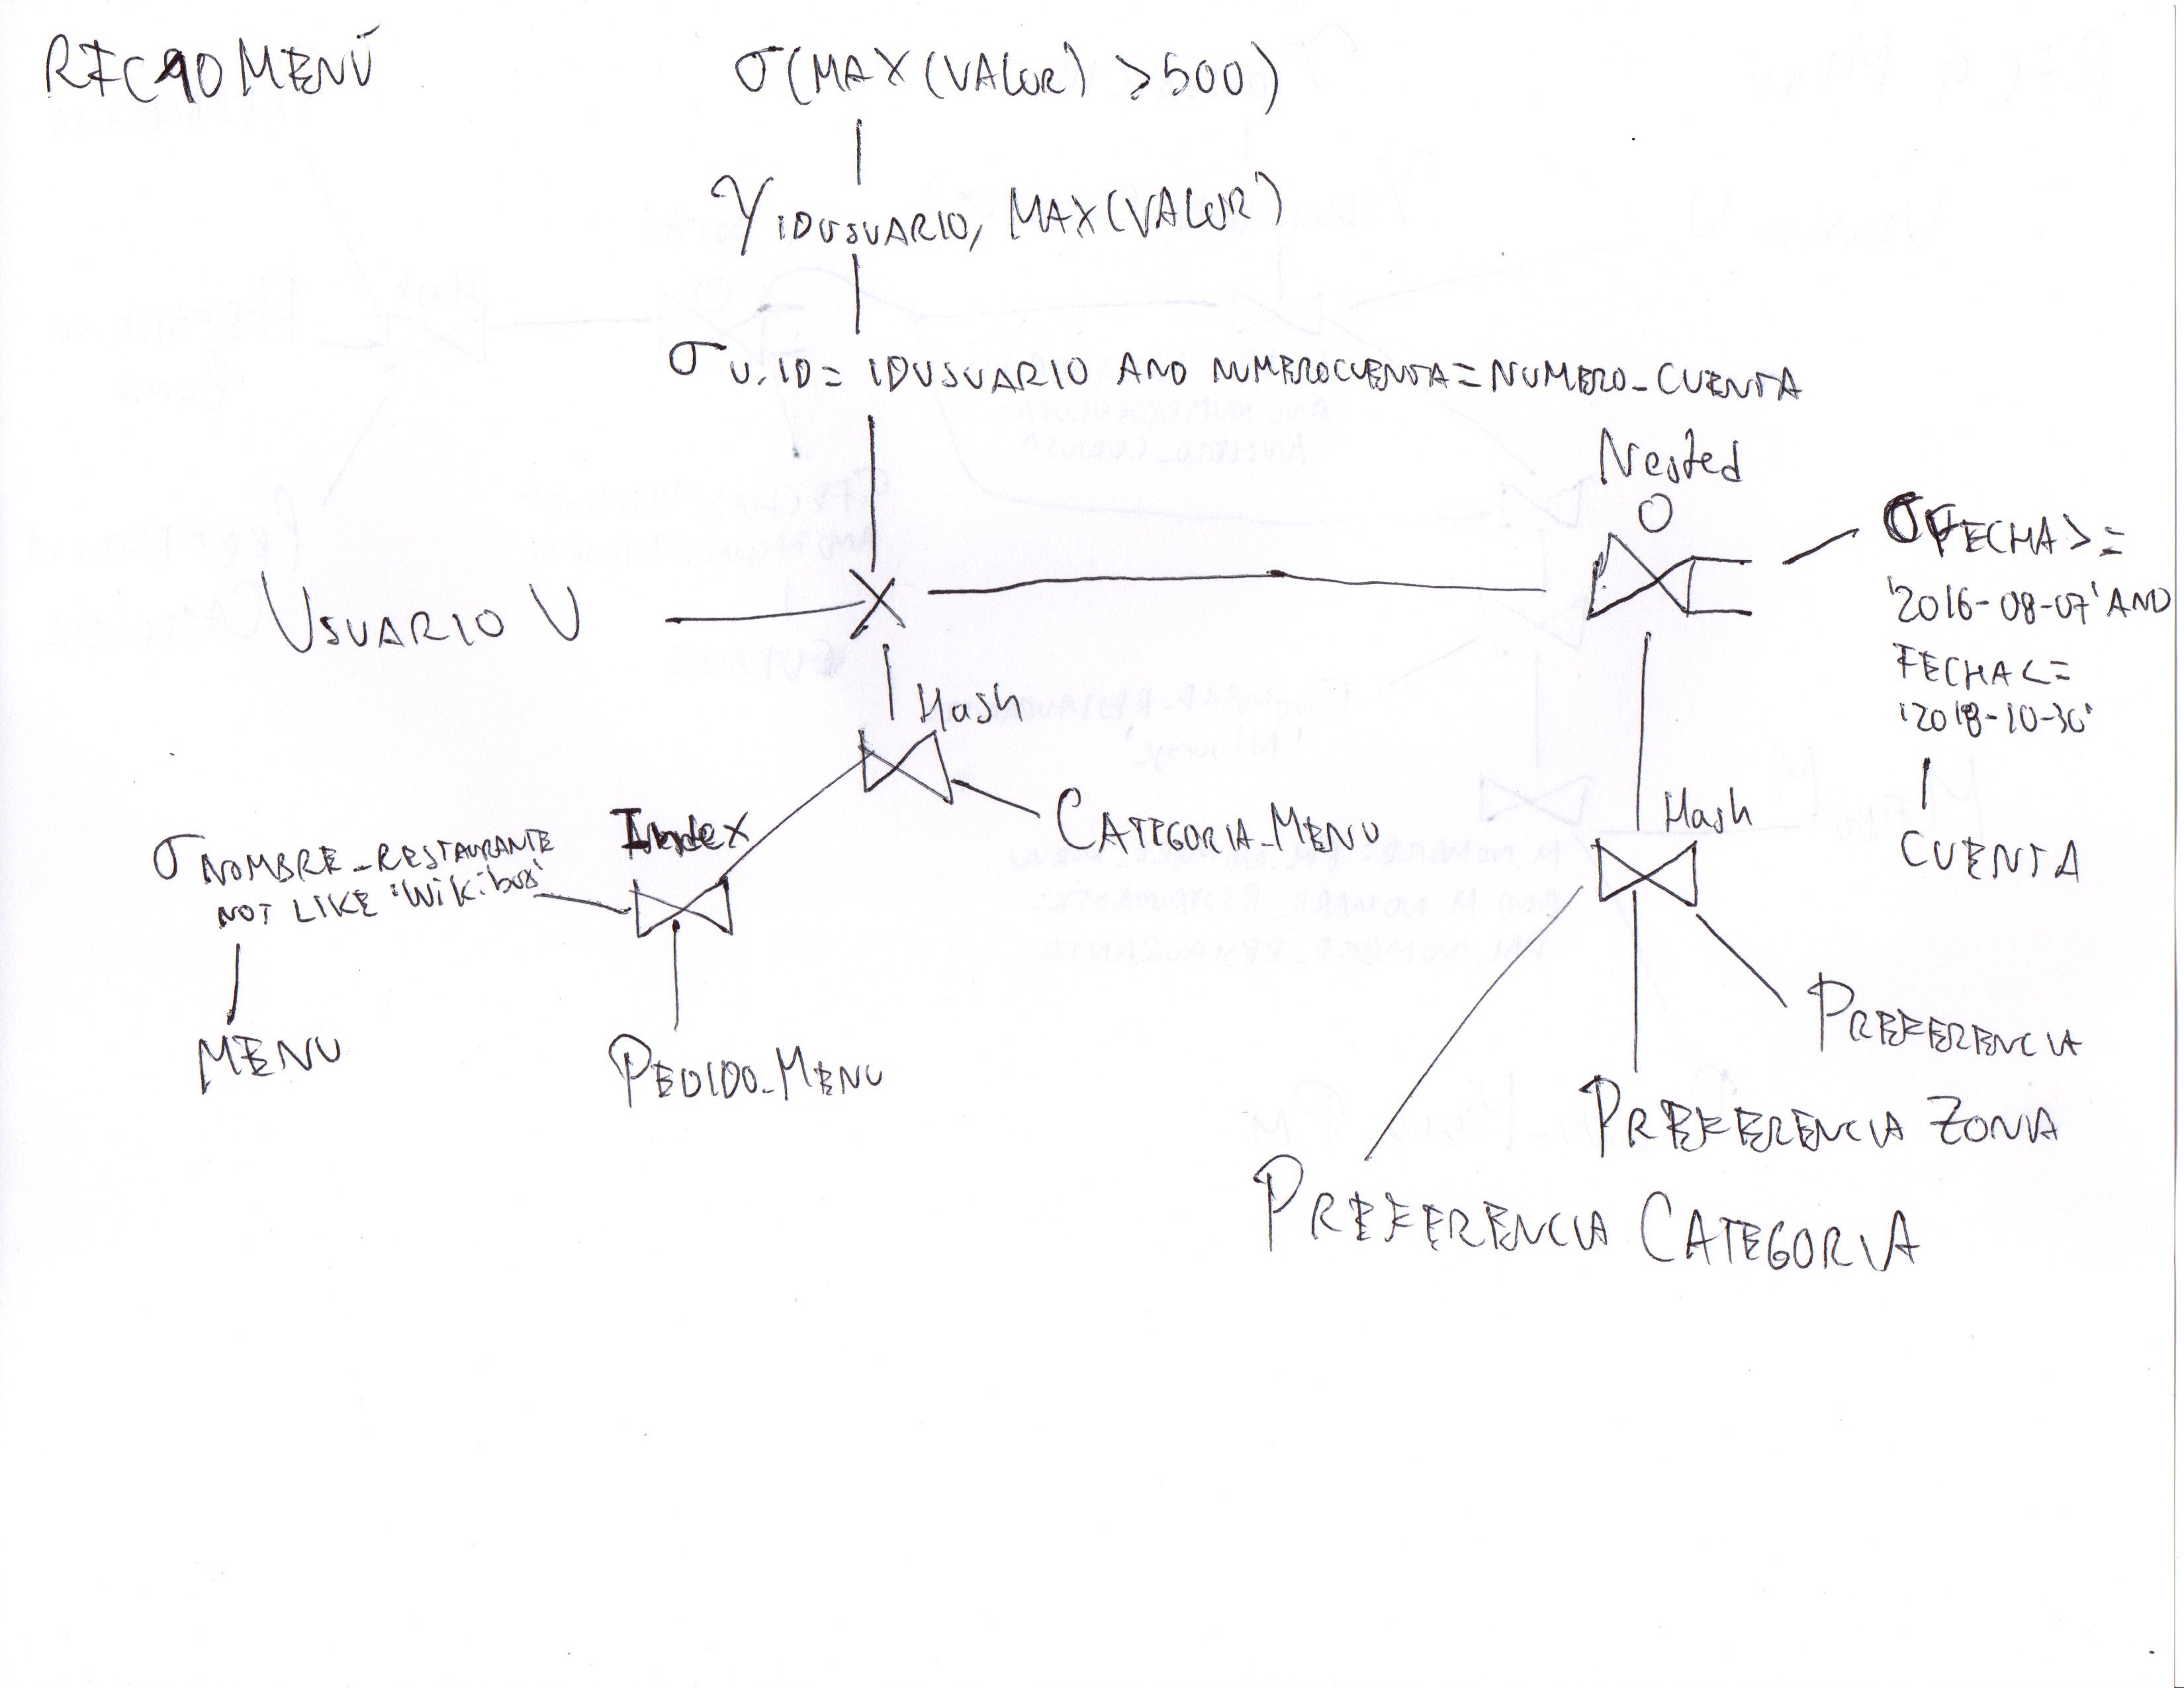 RFC10 MENÚ
σ(MAX(VALOR) >500)
γ IDUSUARIO, MAX(VALOR)
σ U.ID= IDUSUARIO AND NUMEROCUENTA=NUMERO_CUENTA
Nested
σ FECHA>=
'2016-08-07' AND
FECHA<=
'2018-10-30'
CUENTA
USUARIO U
X
Hash
CATEGORIA_MENU
Index
σ NOMBRE_RESTAURANTE
NOT LIKE 'Wikibox'
MENU
PEDIDO_MENU
Hash
PREFERENCIA
PREFERENCIA ZONA
PREFERENCIA CATEGORIA